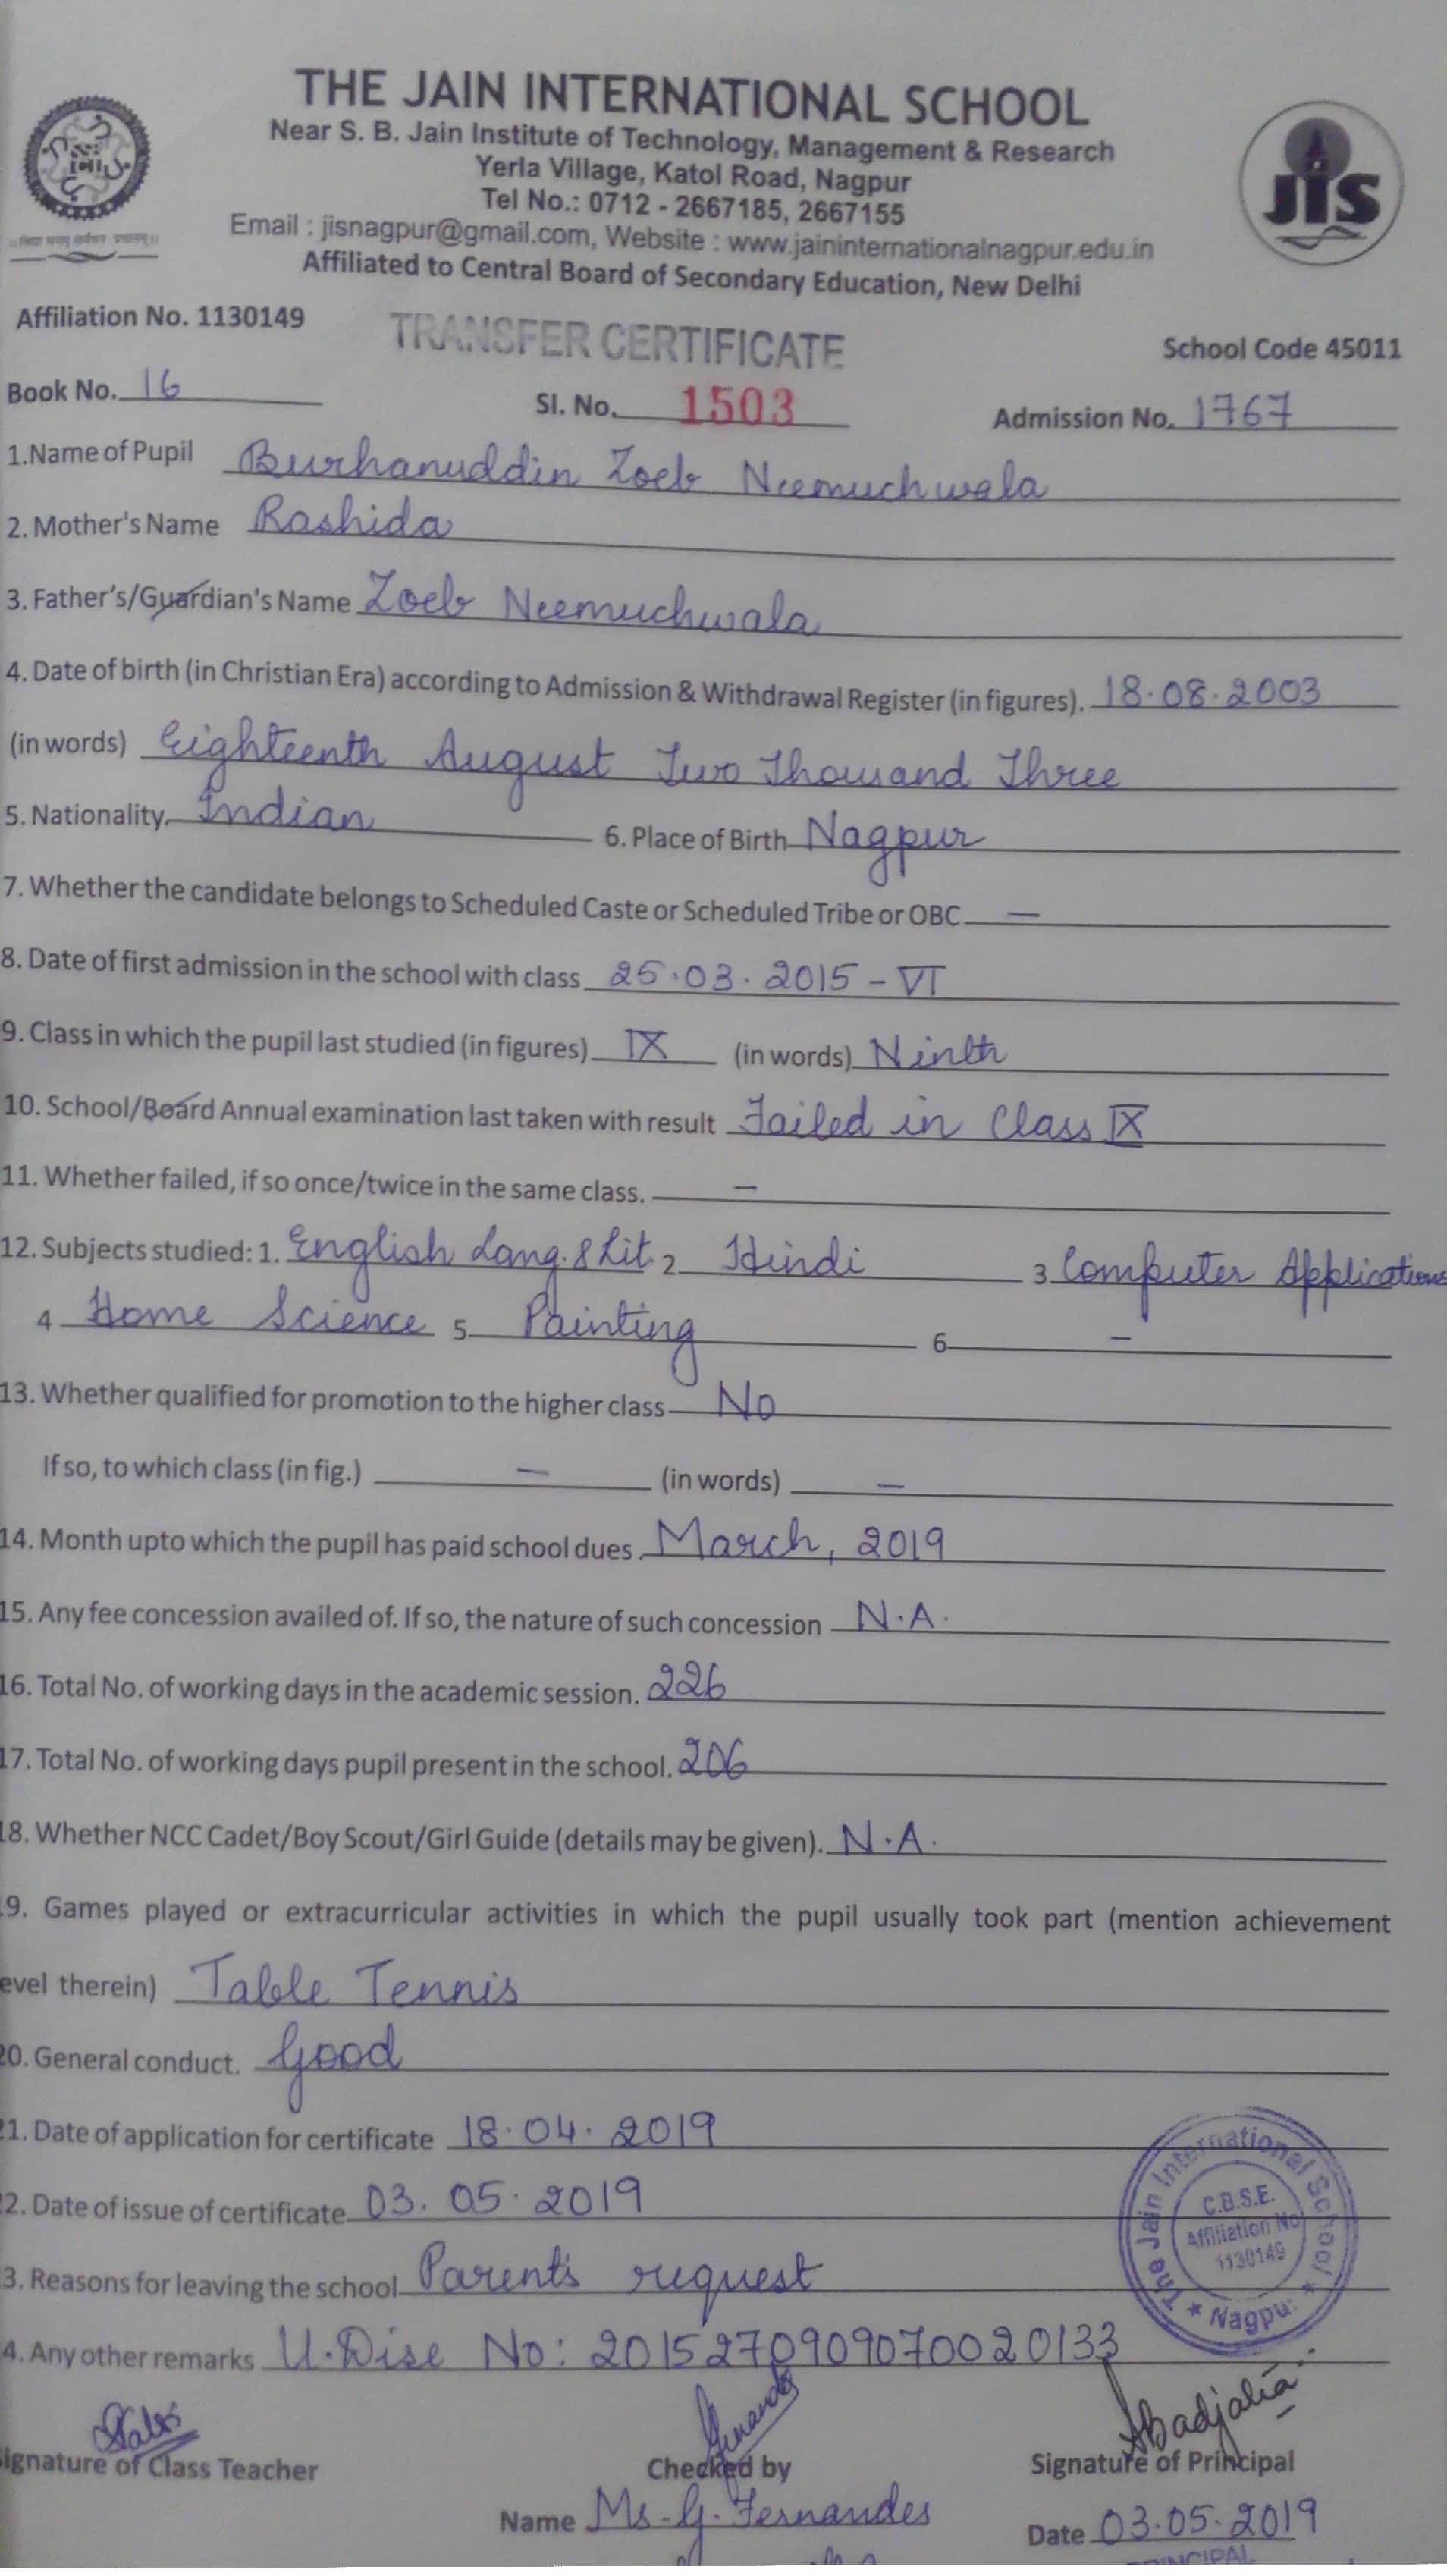 THE JAIN INTERNATIONAL SCHOOL
Near S. B. Jain Institute of Technology, Management & Research
Yerla Village, Katol Road, Nagpur
Tel No.: 0712 - 2667185, 2667155
Email : jisnagpur@gmail.com, Website : www.jaininternationalnagpur.edu.in
Affiliated to Central Board of Secondary Education, New Delhi
JIS
Affiliation No. 1130149
TRANSFER CERTIFICATE
School Code 45011
Book No. 16 Sl. No. 1503 Admission No. 1767
1.Name of Pupil Burhanuddin Zoeb Neemuchwala
2. Mother's Name Rashida
3. Father's/Guardian's Name Zoeb Neemuchwala
4. Date of birth (in Christian Era) according to Admission & Withdrawal Register (in figures). 18.08.2003
(in words) Eighteenth August Two Thousand Three
5. Nationality. Indian 6. Place of Birth Nagpur
7. Whether the candidate belongs to Scheduled Caste or Scheduled Tribe or OBC —
8. Date of first admission in the school with class 25.03.2015 - VI
9. Class in which the pupil last studied (in figures) IX (in words) Ninth
10. School/Board Annual examination last taken with result Failed in Class IX
11. Whether failed, if so once/twice in the same class. —
12. Subjects studied: 1. English Lang. & Lit 2 Hindi 3 Computer Applications
4 Home Science 5 Painting 6 —
13. Whether qualified for promotion to the higher class No
If so, to which class (in fig.) — (in words) —
14. Month upto which the pupil has paid school dues March, 2019
15. Any fee concession availed of. If so, the nature of such concession N.A.
16. Total No. of working days in the academic session. 226
17. Total No. of working days pupil present in the school. 206
18. Whether NCC Cadet/Boy Scout/Girl Guide (details may be given). N.A.
9. Games played or extracurricular activities in which the pupil usually took part (mention achievement
evel therein) Table Tennis
20. General conduct. Good
21. Date of application for certificate 18.04.2019
2. Date of issue of certificate 03.05.2019
3. Reasons for leaving the school Parent's request
4. Any other remarks U-Dise No: 2015270909070020133
The Jain International School
C.B.S.E.
Affiliation No
1130149
★ Nagpu
ignature of Class Teacher
Checked by
Signature of Principal
Name Ms. G. Fernandes
Date 03.05.2019
PRINCIPAL